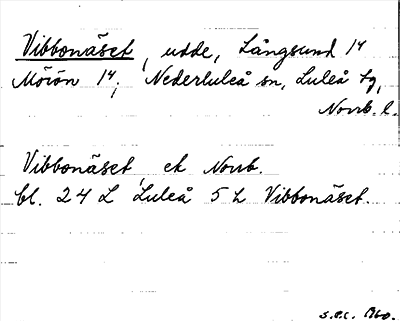 Vibbonäset, udde, Långsund 1/4
Möiön 1/4; Nederluleå sn, Luleå tg,
Norrb. l.
Vibbonäset ek Norrb.
bl. 24 L, Luleå 5 L Vibbonäset.
S.P.C. 1960.